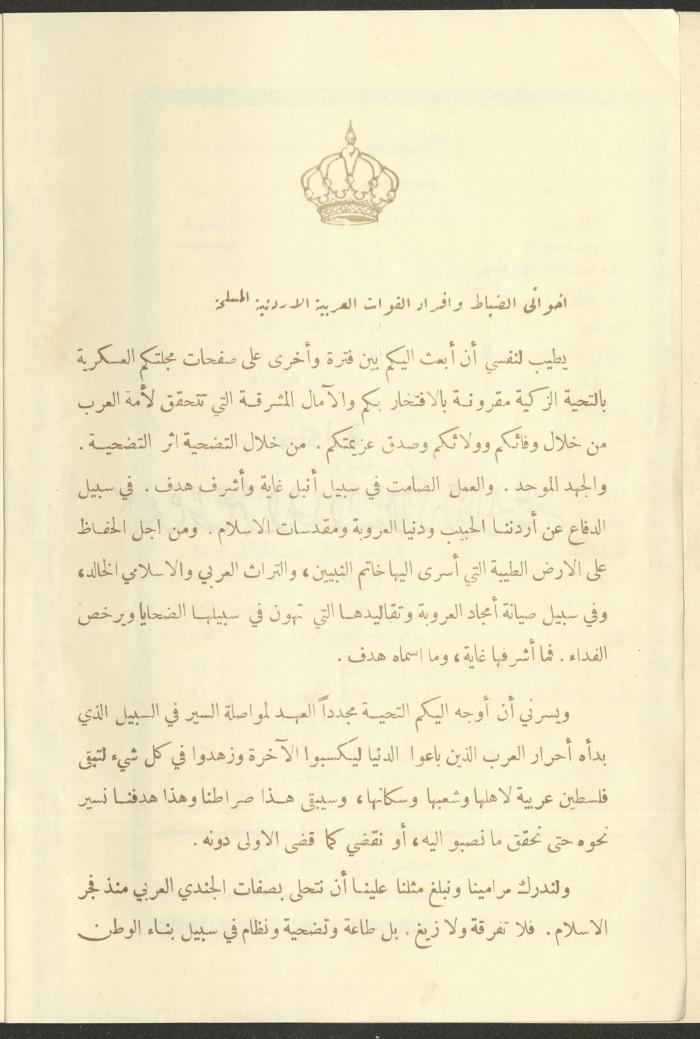 اخواني الضباط وافراد القوات العربية الاردنية المسلحة
يطيب لنفسي أن أبعث اليكم بين فترة وأخرى على صفحات مجلتكم العسكرية
بالتحية الزكية مقرونة بالافتخار بكم والآمال المشرقة التي تتحقق لأمة العرب
من خلال وفائكم وولائكم وصدق عزيمتكم . من خلال التضحية اثر التضحية .
والجهد الموحد . والعمل الصامت في سبيل أنبل غاية وأشرف هدف . في سبيل
الدفاع عن أردننا الحبيب ودنيا العروبة ومقدسات الاسلام . ومن اجل الحفاظ
على الارض الطيبة التي أسرى اليها خاتم النبيين، والتراث العربي والاسلامي الخالد،
وفي سبيل صيانة أمجاد العروبة وتقاليدها التي تهون في سبيلها الضحايا ويرخص
الفداء . فما أشرفها غاية، وما اسماه هدف .
ويسرني أن أوجه اليكم التحية مجدداً العهد لمواصلة السير في السبيل الذي
بدأه أحرار العرب الذين باعوا الدنيا ليكسبوا الآخرة وزهدوا في كل شيء لتبقى
فلسطين عربية لاهلها وشعبها وسكانها، وسيبقى هذا صراطنا وهذا هدفنا نسير
نحوه حتى نحقق ما نصبو اليه، أو نقضي كما قضى الاولى دونه .
ولندرك مرامينا ونبلغ مثلنا علينا أن نتحلى بصفات الجندي العربي منذ فجر
الاسلام . فلا تفرقة ولا زيغ . بل طاعة وتضحية ونظام في سبيل بناء الوطن